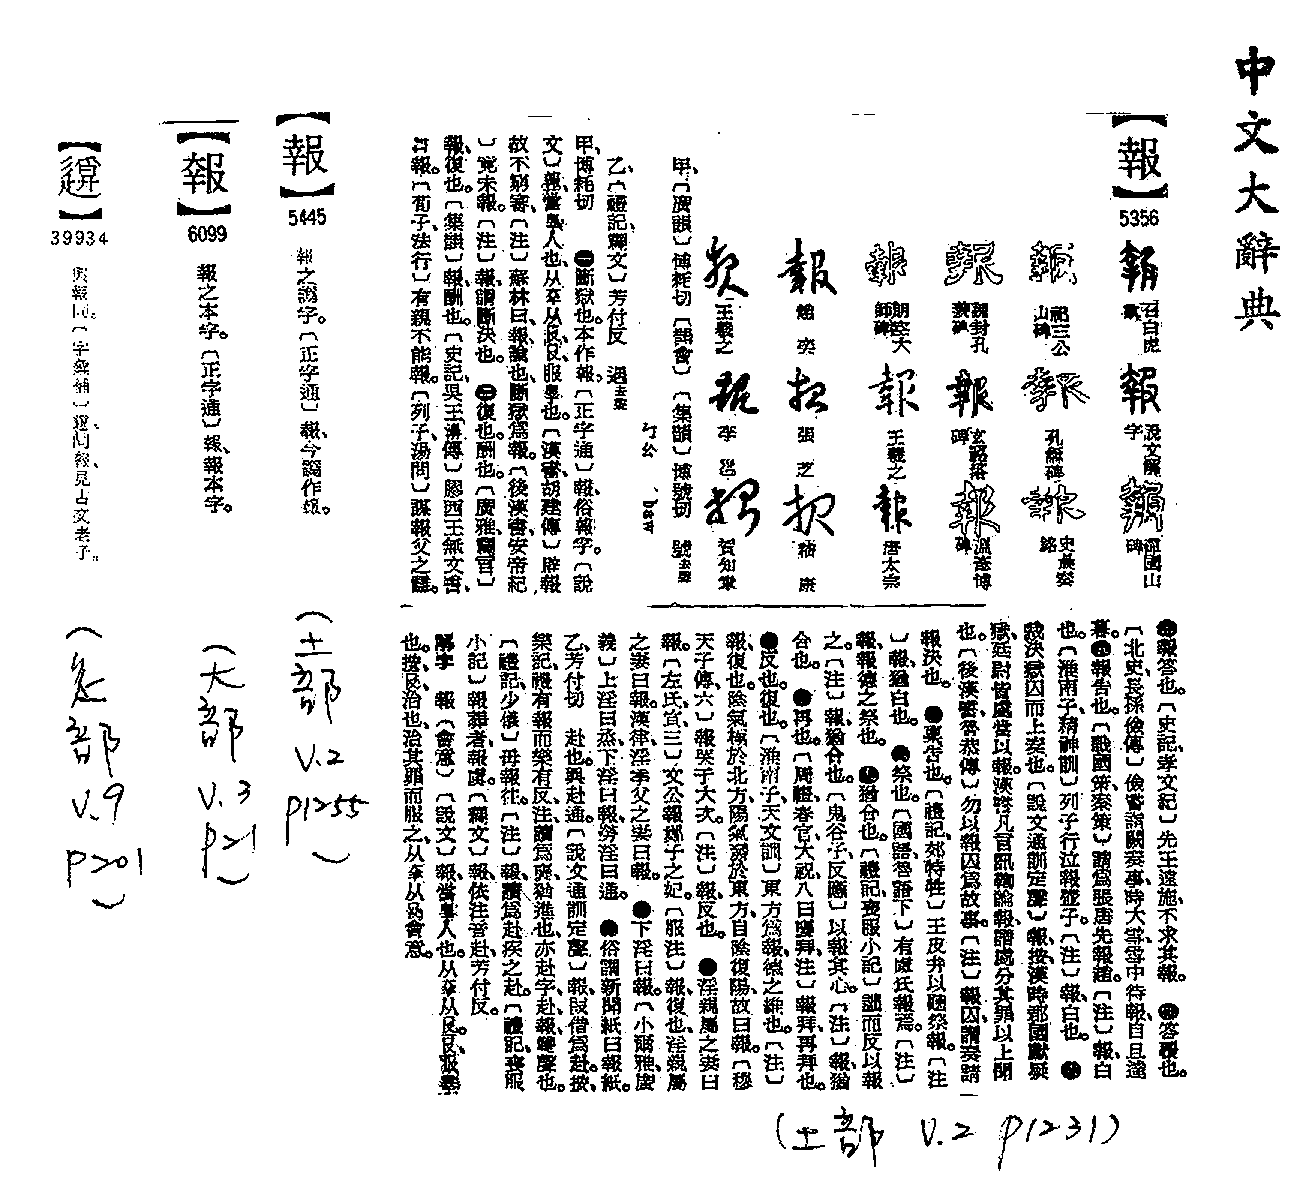 中文大辭典
【報】
5356
報 召白虎
報 說文解字
報 碑
報 祀三公山碑
報 孔龢碑
報 史晨奏銘
報 魏封孔羨碑
報 碑
報 碑
報 師碑
報 王羲之
報 唐太宗
報
報 張芝
報 嵇康
報 王羲之
報 李邕
報 賀知章
甲、〔廣韻〕博耗切〔韻會〕〔集韻〕博號切 號去聲
ㄅㄠ baw
乙、〔禮記釋文〕芳付反 遇去聲
甲、博耗切 ㊀斷獄也。本作報。〔正字通〕報、俗報字。〔說
文〕報、當辠人也、从㚔从𠬝、𠬝、服辠也。〔漢書胡建傳〕辟報
故不窮審。〔注〕蘇林曰、報、論也、斷獄爲報。〔後漢書安帝紀
〕竟未報。〔注〕報、謂斷決也。 ㊁復也、酬也。〔廣雅釋言〕
報、復也。〔集韻〕報、酬也。〔史記吳王濞傳〕膠西王無文書、
口報。〔荀子法行〕有親不能報。〔列子湯問〕謀報父之讎。
㊂報答也。〔史記孝文紀〕先王遠施、不求其報。 ㊃答禮也。
〔北史長孫儉傳〕儉嘗詣闕奏事、時大雪、雪中待報、自旦達
暮。㊄報告也。〔戰國策秦策〕請爲張唐先報趙。〔注〕報、白
也。〔淮南子精神訓〕列子行泣報壺子。〔注〕報、白也。
裁決獄囚而上奏也。〔說文通訓定聲〕報、按漢時郡國讞疑
獄、廷尉皆處當以報、漢書凡言訊鞫論報、謂處分其罪以上聞
也。〔後漢書魯恭傳〕勿以報囚爲故事。〔注〕報囚、謂奏請
報決也。 ●稟告也。〔禮記郊特牲〕王皮弁以聽祭報。〔注
〕報、猶白也。 ●祭也。〔國語魯語下〕有虞氏報焉。〔注〕
報、報德之祭也。 ●猶合也。〔禮記喪服小記〕詘而反以報
之。〔注〕報、猶合也。〔鬼谷子反應〕以報其心。〔注〕報、猶
合也。 ●再也。〔周禮春官大祝〕八曰襃拜。注〕報拜、再拜也。
●反也、復也。〔淮南子天文訓〕東方爲報德之維也。〔注〕
報、復也、陰氣極於北方、陽氣發於東方、自陰復陽、故曰報。〔穆
天子傳六〕報哭于大次。〔注〕報、反也。 ●淫親屬之妻曰
報。〔左氏宣三〕文公報鄭子之妃。〔服注〕報、復也、淫親屬
之妻曰報、漢律、淫季父之妻曰報。 ●下淫曰報。〔小爾雅廣
義〕上淫曰烝、下淫曰報、旁淫曰通。 ●俗謂新聞紙曰報紙。
乙、芳付切 赴也。與赴通。〔說文通訓定聲〕報、叚借爲赴。〔按、
樂記、禮有報而樂有反、注、讀爲襃、猶進也、亦赴字、赴報雙聲也。
〔禮記少儀〕毋報往。〔注〕報、讀爲赴疾之赴。〔禮記、喪服
小記〕報葬者報虞。〔釋文〕報、依注音赴、芳付反。
解字 報（會意）〔說文〕報、當辠人也、从㚔从𠬝、𠬝、服辠
也、按、𠬝治也、治其罪而服之、从㚔从𠬝會意。
(土部 V.2 P1231)
【報】
5445
報之譌字。〔正字通〕報、今譌作報。
(土部 V.2 P1255)
【報】
6099
報之本字。〔正字通〕報、報本字。
(大部 V.3 P21)
39934
與報同。〔字彙補〕與同、報、見古文老子。
(辵部 V.9 P201)